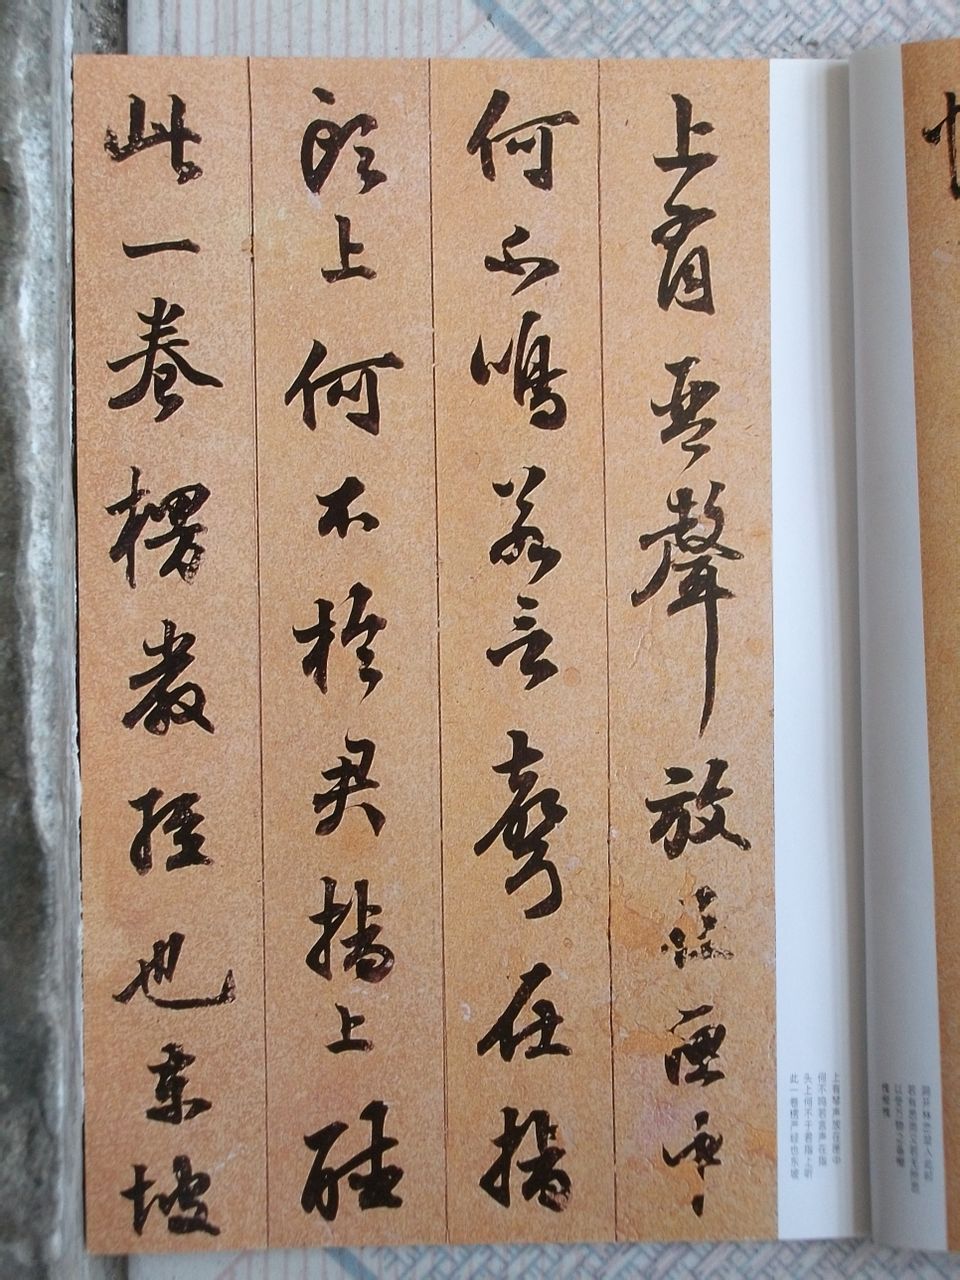 上有琴聲放在匣中
何不鳴若言聲在指
頭上何不於君指上聽
此一卷楞嚴經也東坡
上有琴声放在匣中
何不鸣若言声在指
头上何不于君指上听
此一卷楞严经也东坡